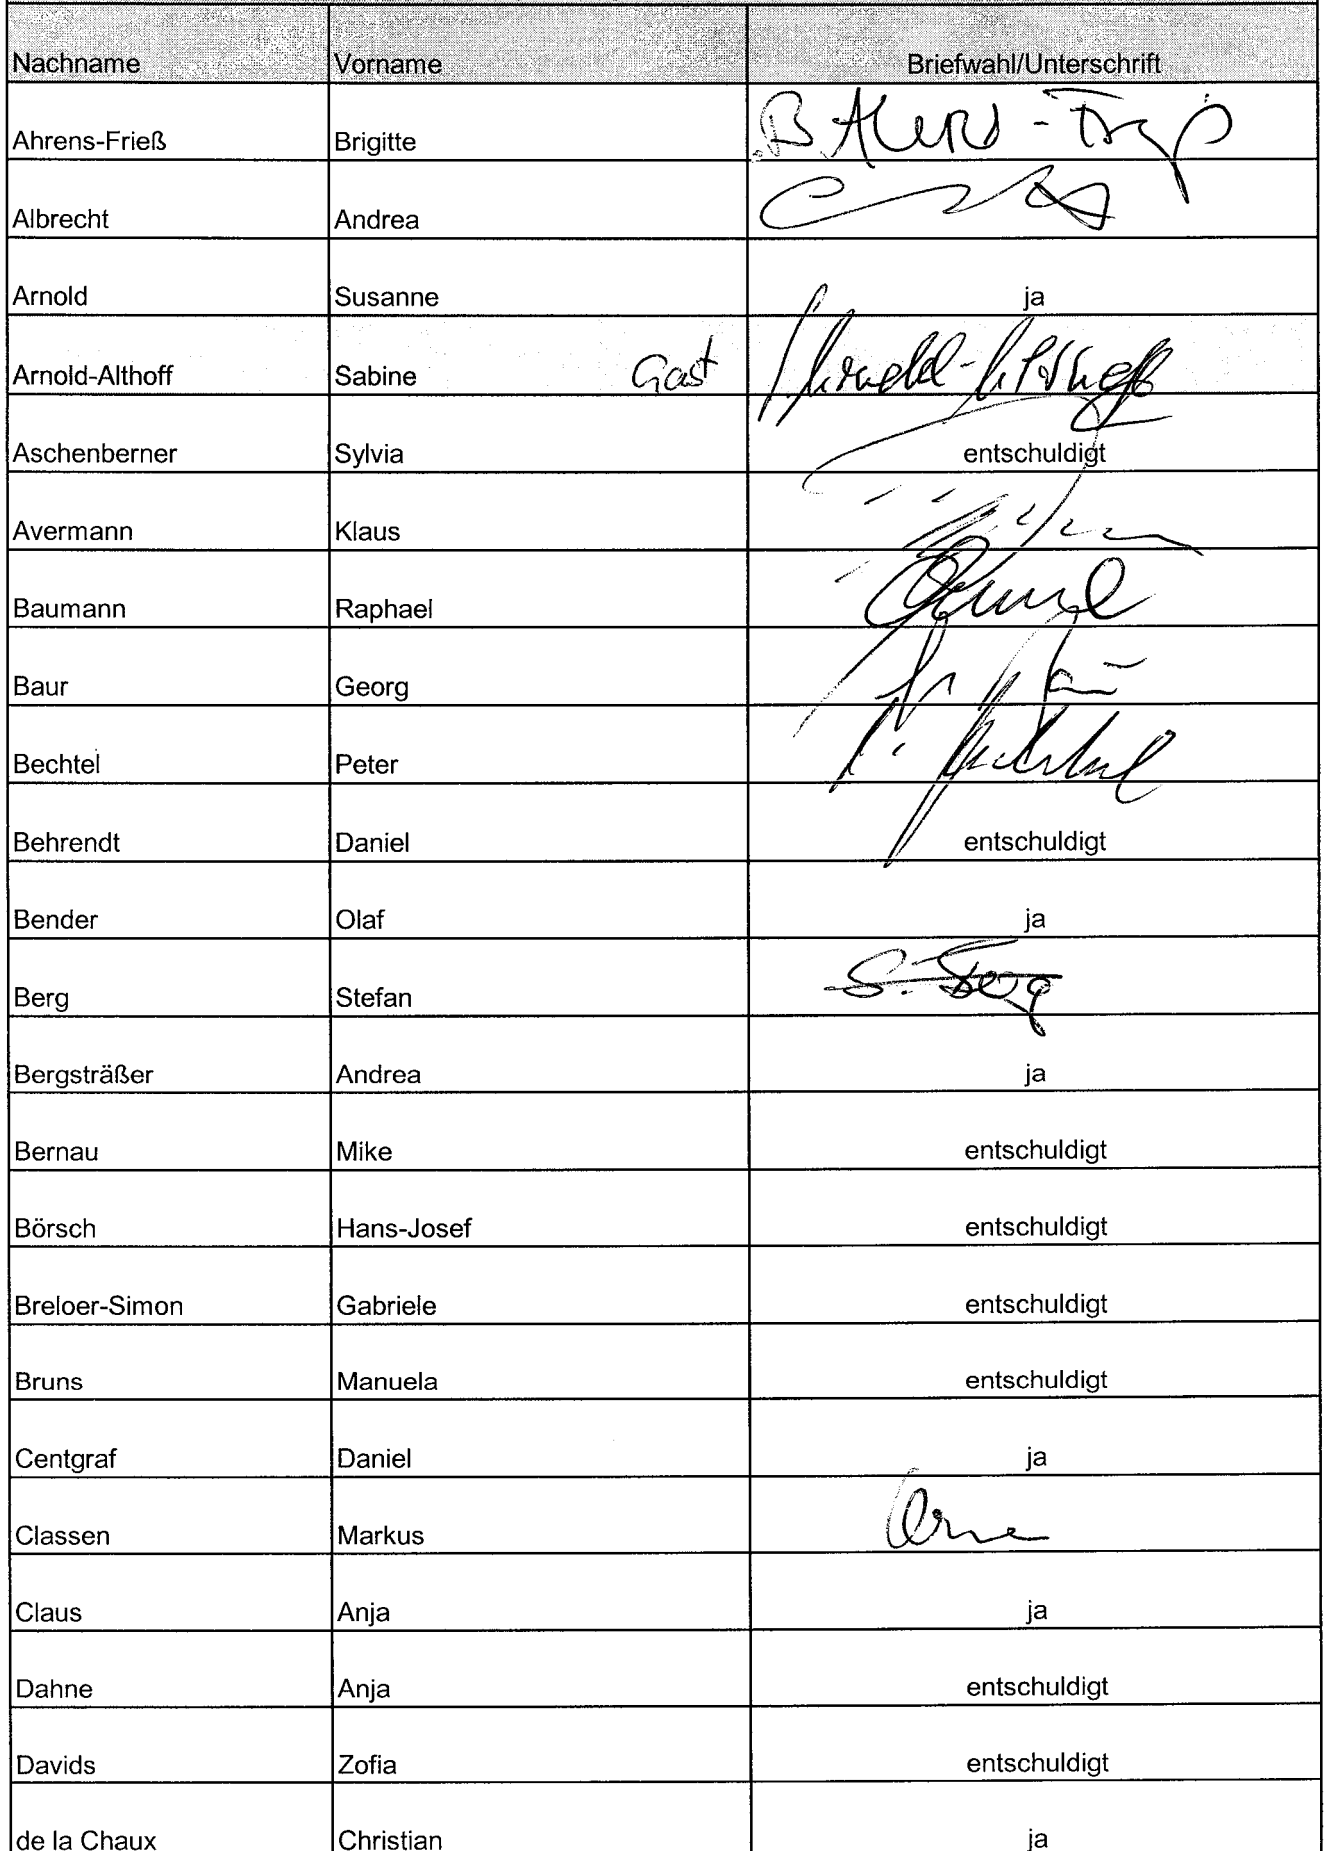 Nachname Vorname Briefwahl/Unterschrift
Ahrens-Frieß Brigitte
Albrecht Andrea
Arnold Susanne ja
Arnold-Althoff Sabine Gast Arnold-Althoff
Aschenberner Sylvia entschuldigt
Avermann Klaus
Baumann Raphael
Baur Georg
Bechtel Peter P. Bechtel
Behrendt Daniel entschuldigt
Bender Olaf ja
Berg Stefan S. Berg
Bergsträßer Andrea ja
Bernau Mike entschuldigt
Börsch Hans-Josef entschuldigt
Breloer-Simon Gabriele entschuldigt
Bruns Manuela entschuldigt
Centgraf Daniel ja
Classen Markus
Claus Anja ja
Dahne Anja entschuldigt
Davids Zofia entschuldigt
de la Chaux Christian ja